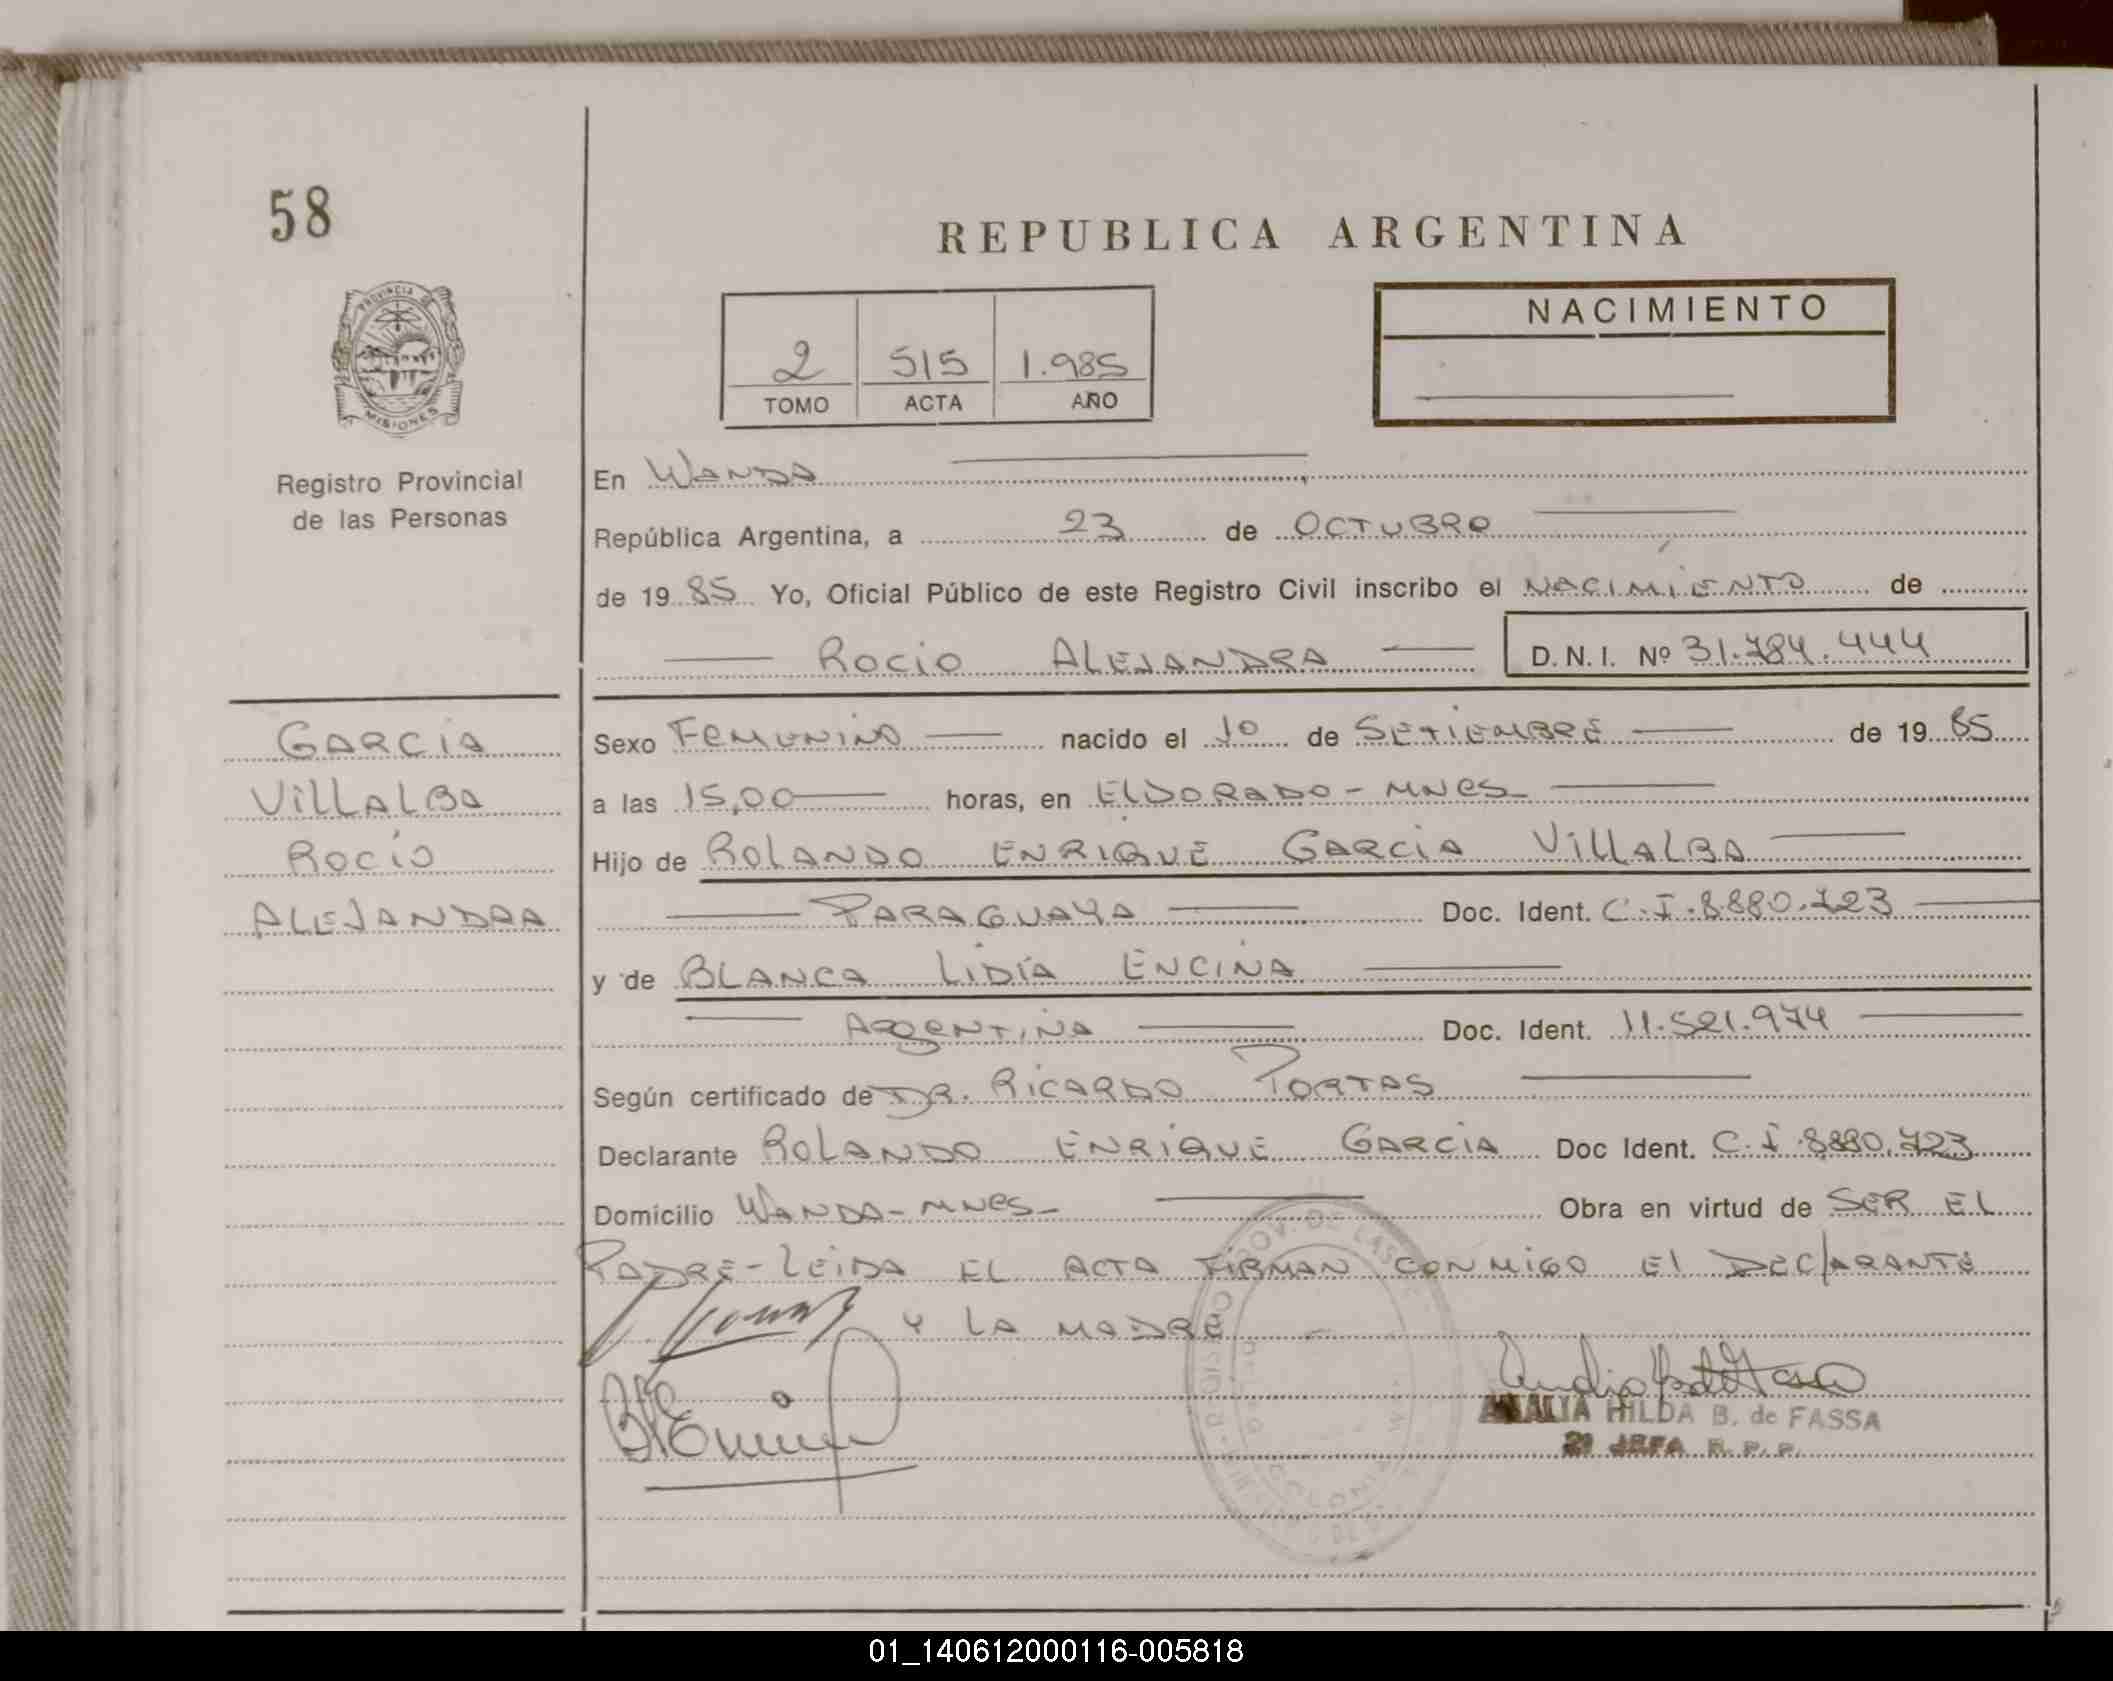 58
REPUBLICA ARGENTINA
PROVINCIA DE
MISIONES
Registro Provincial
de las Personas
2 515 1.985
TOMO ACTA AÑO
NACIMIENTO
En WANDA
República Argentina, a 23 de OCTUBRE
de 19 85 Yo, Oficial Público de este Registro Civil inscribo el NACIMIENTO de
ROCIO ALEJANDRA D.N.I. Nº 31.784.444
GARCIA
VILLALBA
ROCÍO
ALEJANDRA
Sexo FEMENINO nacido el 10 de SETIEMBRE de 19 85
a las 15,00 horas, en ELDORADO - MNES
Hijo de ROLANDO ENRIQUE GARCIA VILLALBA
PARAGUAYA Doc. Ident. C.I. 8.880.723
y de BLANCA LIDIA ENCINA
ARGENTINA Doc. Ident. 11.521.974
Según certificado de DR. RICARDO PORTAS
Declarante ROLANDO ENRIQUE GARCIA Doc Ident. C.I. 8.880.723
Domicilio WANDA - MNES - Obra en virtud de SER EL
PADRE - LEIDA EL ACTA FIRMAN CONMIGO EL DECLARANTE
Y LA MADRE
ANALIA HILDA B. de FASSA
2ª JEFA R. P. P.
01_140612000116-005818